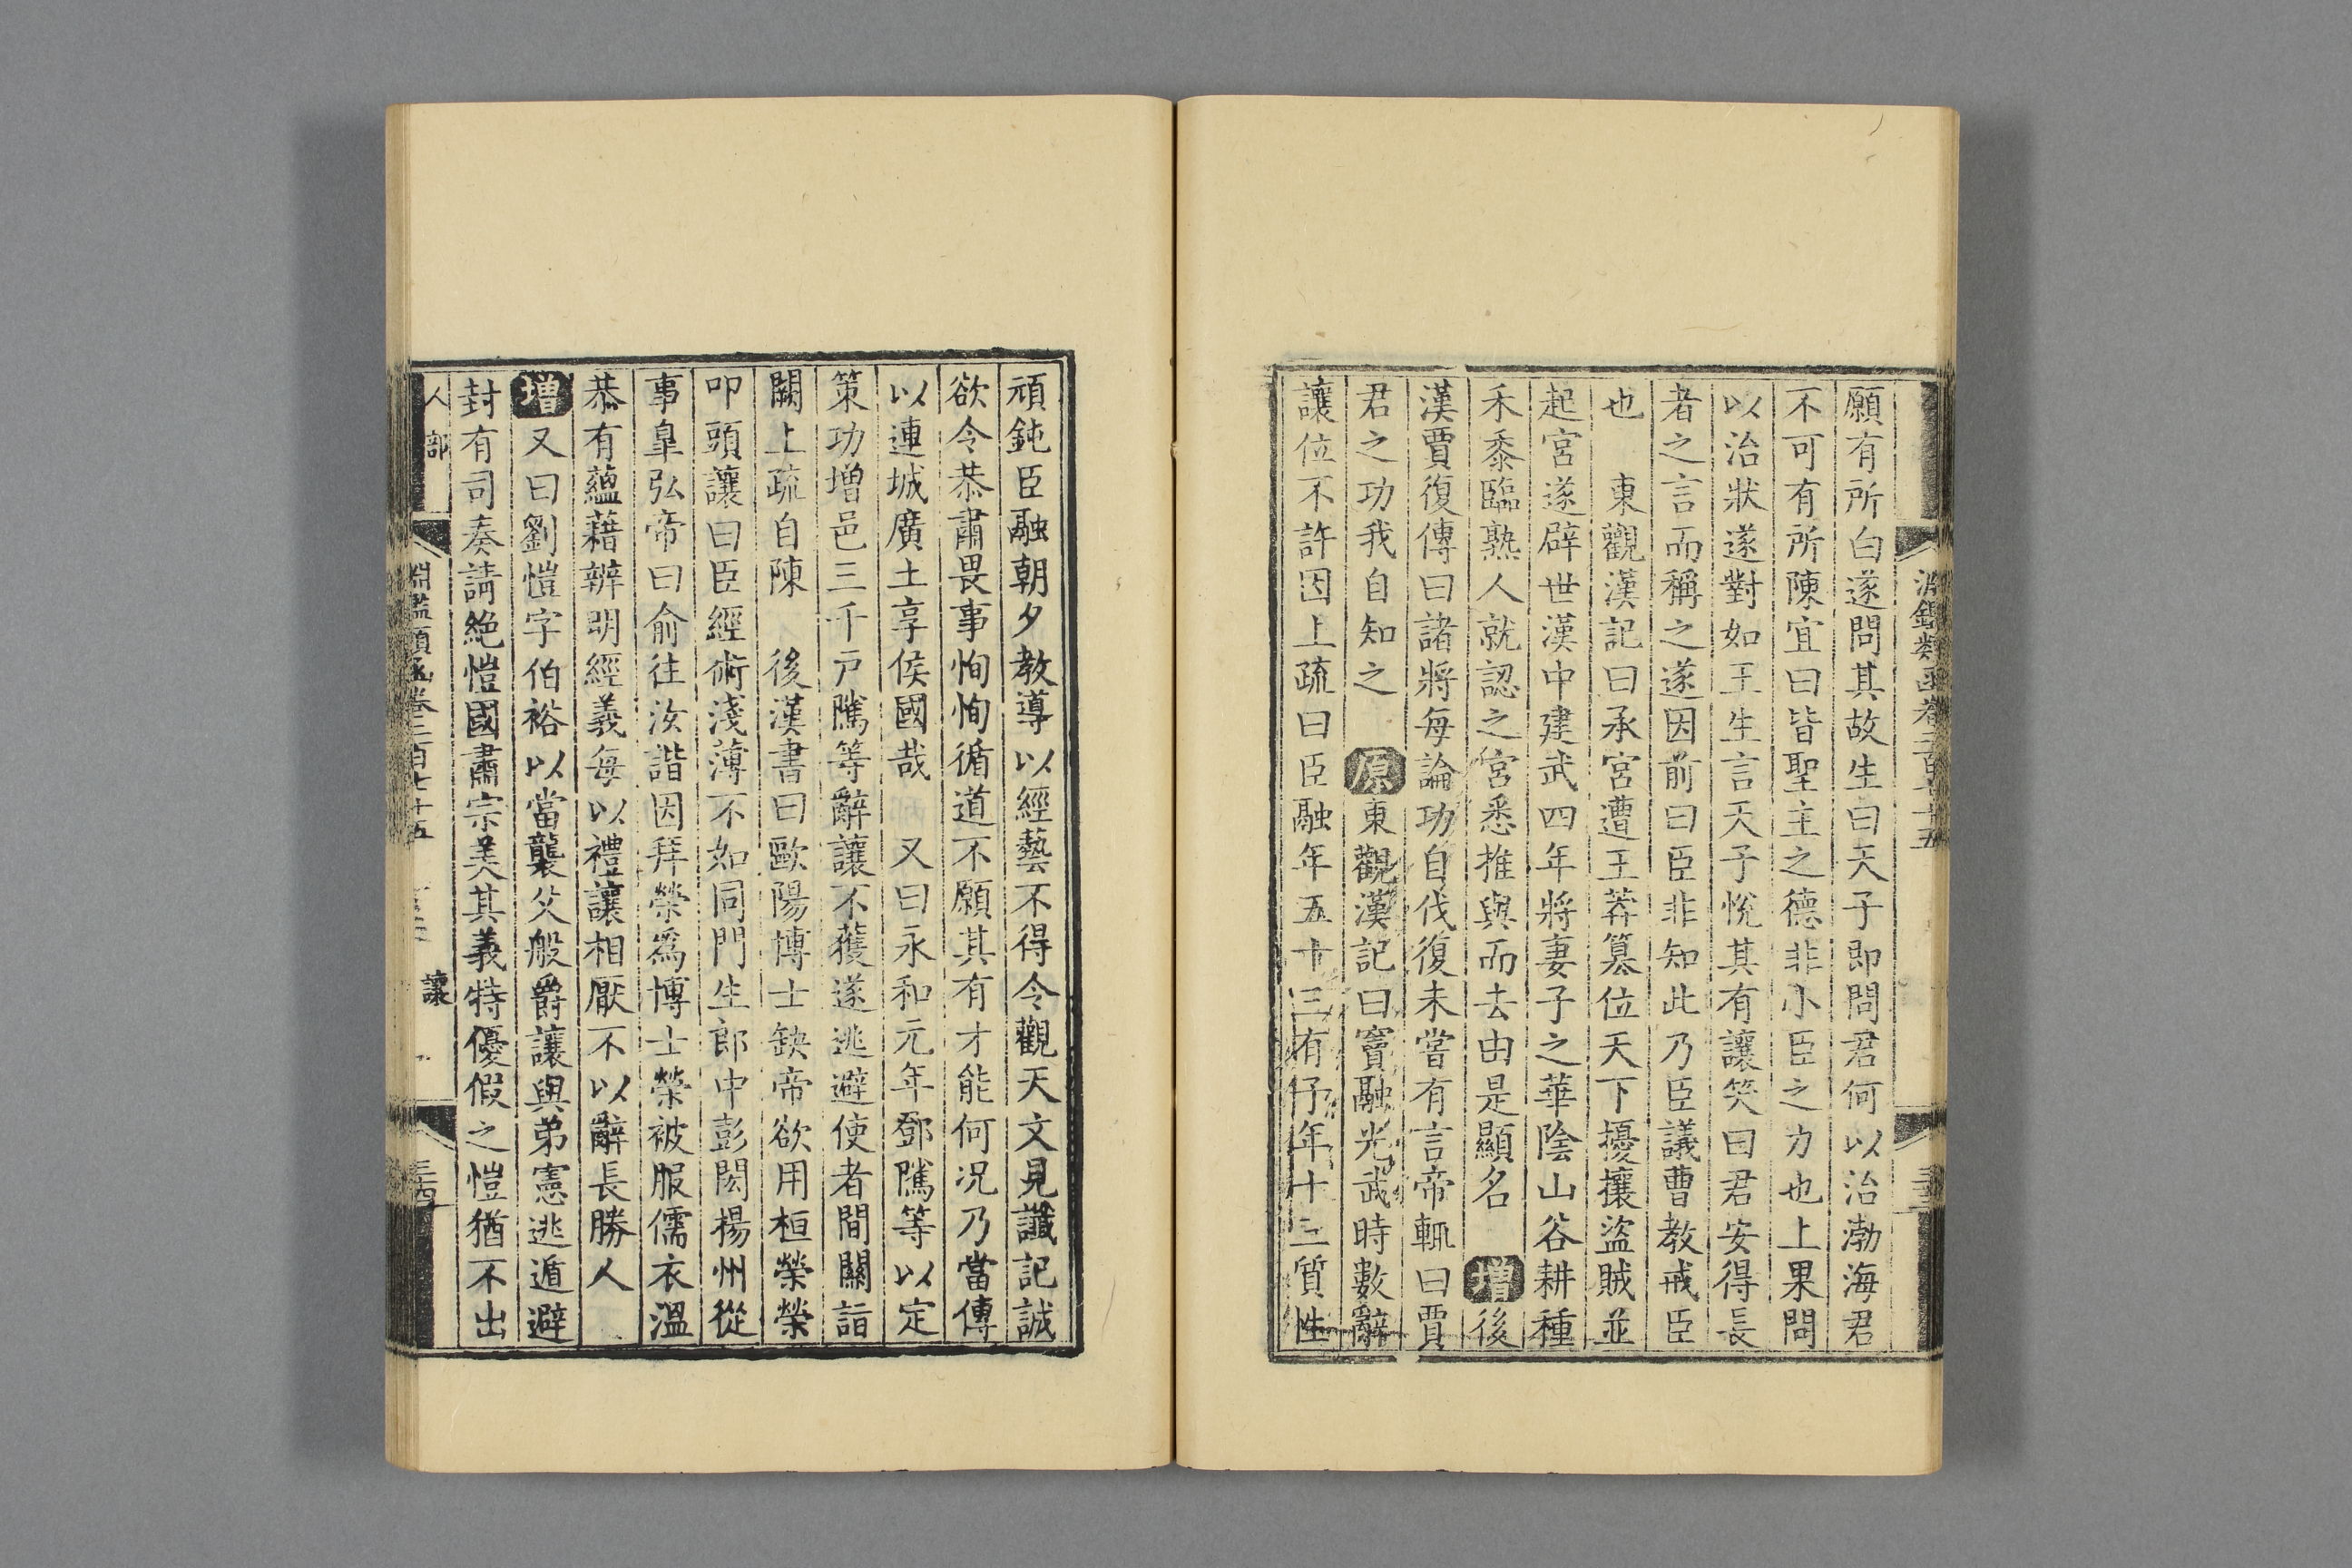 願有所白遂問其故生曰天子即問君何以治渤海君
不可有所陳宜曰皆聖主之德非小臣之力也上果問
以治狀遂對如王生言天子悅其有讓笑曰君安得長
者之言而稱之遂因前曰臣非知此乃臣議曹教戒臣
也　東觀漢記曰承宮遭王莽篡位天下擾攘盜賊並
起宮遂辟世漢中建武四年將妻子之華陰山谷耕種
禾黍臨熟人就認之宮悉推與而去由是顯名　增後
漢賈復傳曰諸將每論功自伐復未嘗有言帝輒曰賈
君之功我自知之　原東觀漢記曰竇融光武時數辭
讓位不許因上疏曰臣融年五十三有子年十三質性
頑鈍臣融朝夕教導以經藝不得令觀天文見讖記誠
欲令恭肅畏事恂恂循道不願其有才能何況乃當傳
以連城廣土享侯國哉　又曰永和元年鄧騭等以定
策功增邑三千戸騭等辭讓不獲遂逃避使者間關詣
闕上疏自陳　後漢書曰歐陽博士缺帝欲用桓榮榮
叩頭讓曰臣經術淺薄不如同門生郎中彭閎楊州從
事臯弘帝曰俞往汝諧因拜榮爲博士榮被服儒衣溫
恭有蘊藉辨明經義每以禮讓相厭不以辭長勝人
增又曰劉愷字伯裕以當襲父般爵讓與弟憲逃遁避
封有司奏請絶愷國肅宗美其義特優假之愷猶不出
人部　淵鑑類函卷二百七十五　讓　三四